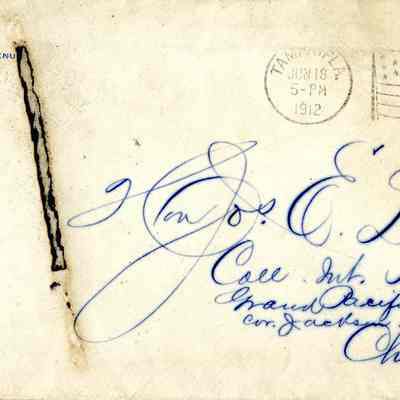 ENU
TAMPA, FLA.
JUN 18
5-PM
1912
Hon Jos. E.
Coll. Int.
Grand Pacifi
cor. Jackson
Ch